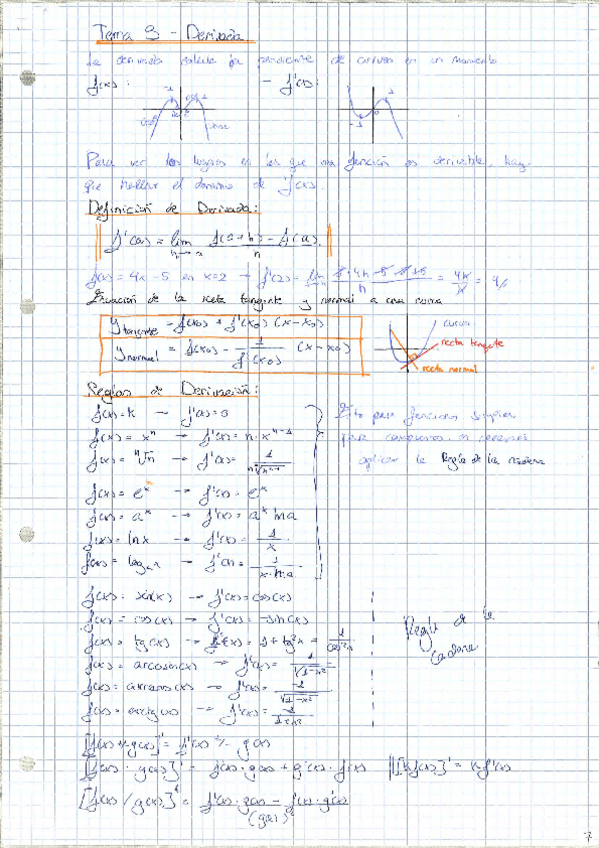 Tema 9 - Derivada
La derivada calcula la pendiente de curvas en un momento
f(x): - f'(x):
Para ver los lugares en los que una función es derivable, hay
que hallar el dominio de f'(x).
Definición de Derivada:
f'(a) = lim h→a f(a+h) - f(a) / h
f(x) = 4x - 5 en x=2 → f'(2) = = 4h/h = 4
Ecuación de la recta tangente y normal a una curva
y tangente = f(x0) + f'(x0) (x-x0)
y normal = f(x0) - 1/f'(x0) (x-x0)
curva
recta tangente
recta normal
Reglas de Derivación:
f(x) = k → f'(x) = 0
f(x) = x^n → f'(x) = n·x^n-1
f(x) = ⁿ√n → f'(x) =
f(x) = e^x → f'(x) = e^x
f(x) = a^x → f'(x) = a^x lna
f(x) = lnx → f'(x) = 1/x
f(x) = log → f'(x) = 1/x·lna
Esto para funciones simples
para compuestas, necesario
aplicar la Regla de la cadena
f(x) = sin(x) → f'(x) = cos(x)
f(x) = cos(x) → f'(x) = -sin(x)
f(x) = tg(x) → f'(x) = 1 + tg²x = 1/cos²x
f(x) = arcosin(x) → f'(x) = 1/√1-x²
f(x) = arccos(x) → f'(x) = -1/√1-x²
f(x) = arctg(x) → f'(x) =
Regla de la
Cadena
[f(x) +/- g(x)]' = f'(x) +/- g(x)
[f(x) · g(x)]' = f(x) · g(x) + g'(x) · f(x) ||[k f(x)]' = k f'(x)
[f(x) / g(x)]' = f'(x) · g(x) - f(x) · g'(x) / (g(x))²
7